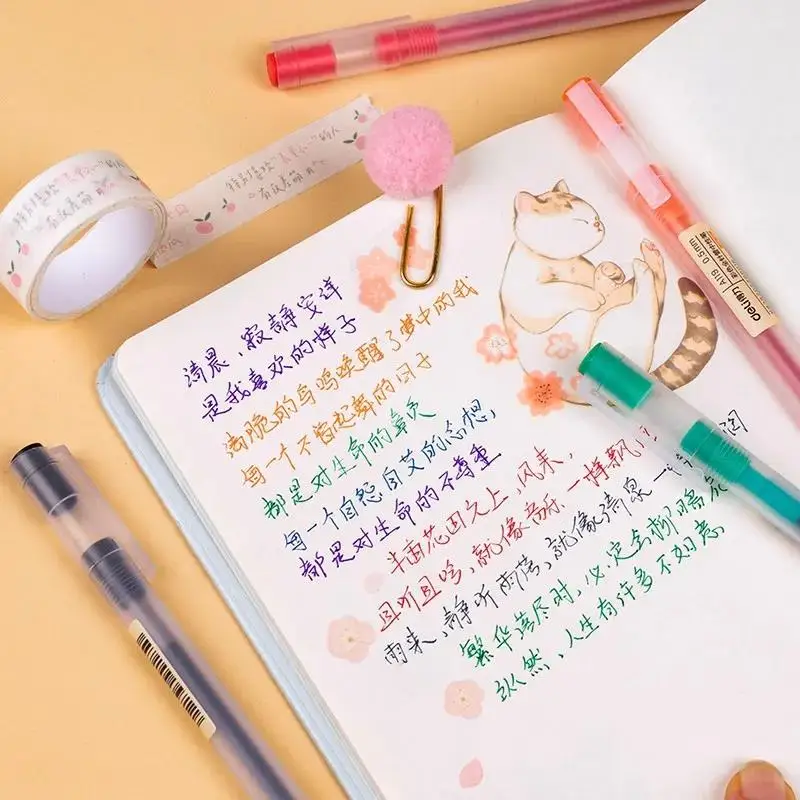 清晨,寂静安详
是我喜欢的样子
清脆的鸟鸣唤醒了梦中的我
每一个不曾起舞的日子
都是对生命的辜负
每一个自怨自艾的念想,
都是对生命的不尊重
半亩花田之上,风来,
且听且吟,就像音乐一样飘
雨来,静听雨落,就像清泉一
繁华落尽时,必定会柳暗花
纵然,人生有许多不如意
特别喜欢
的人
有效
deli得力
A119 0.5mm